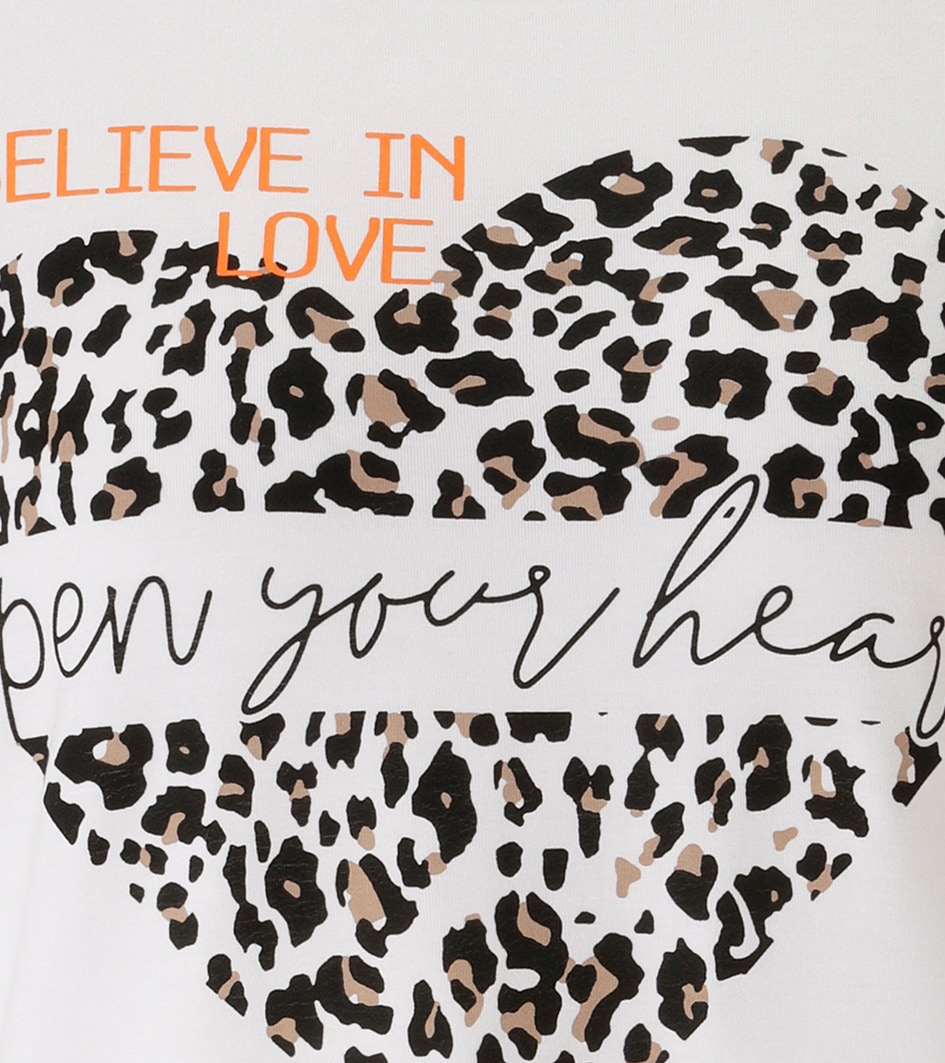 BELIEVE IN
LOVE
pen your hear